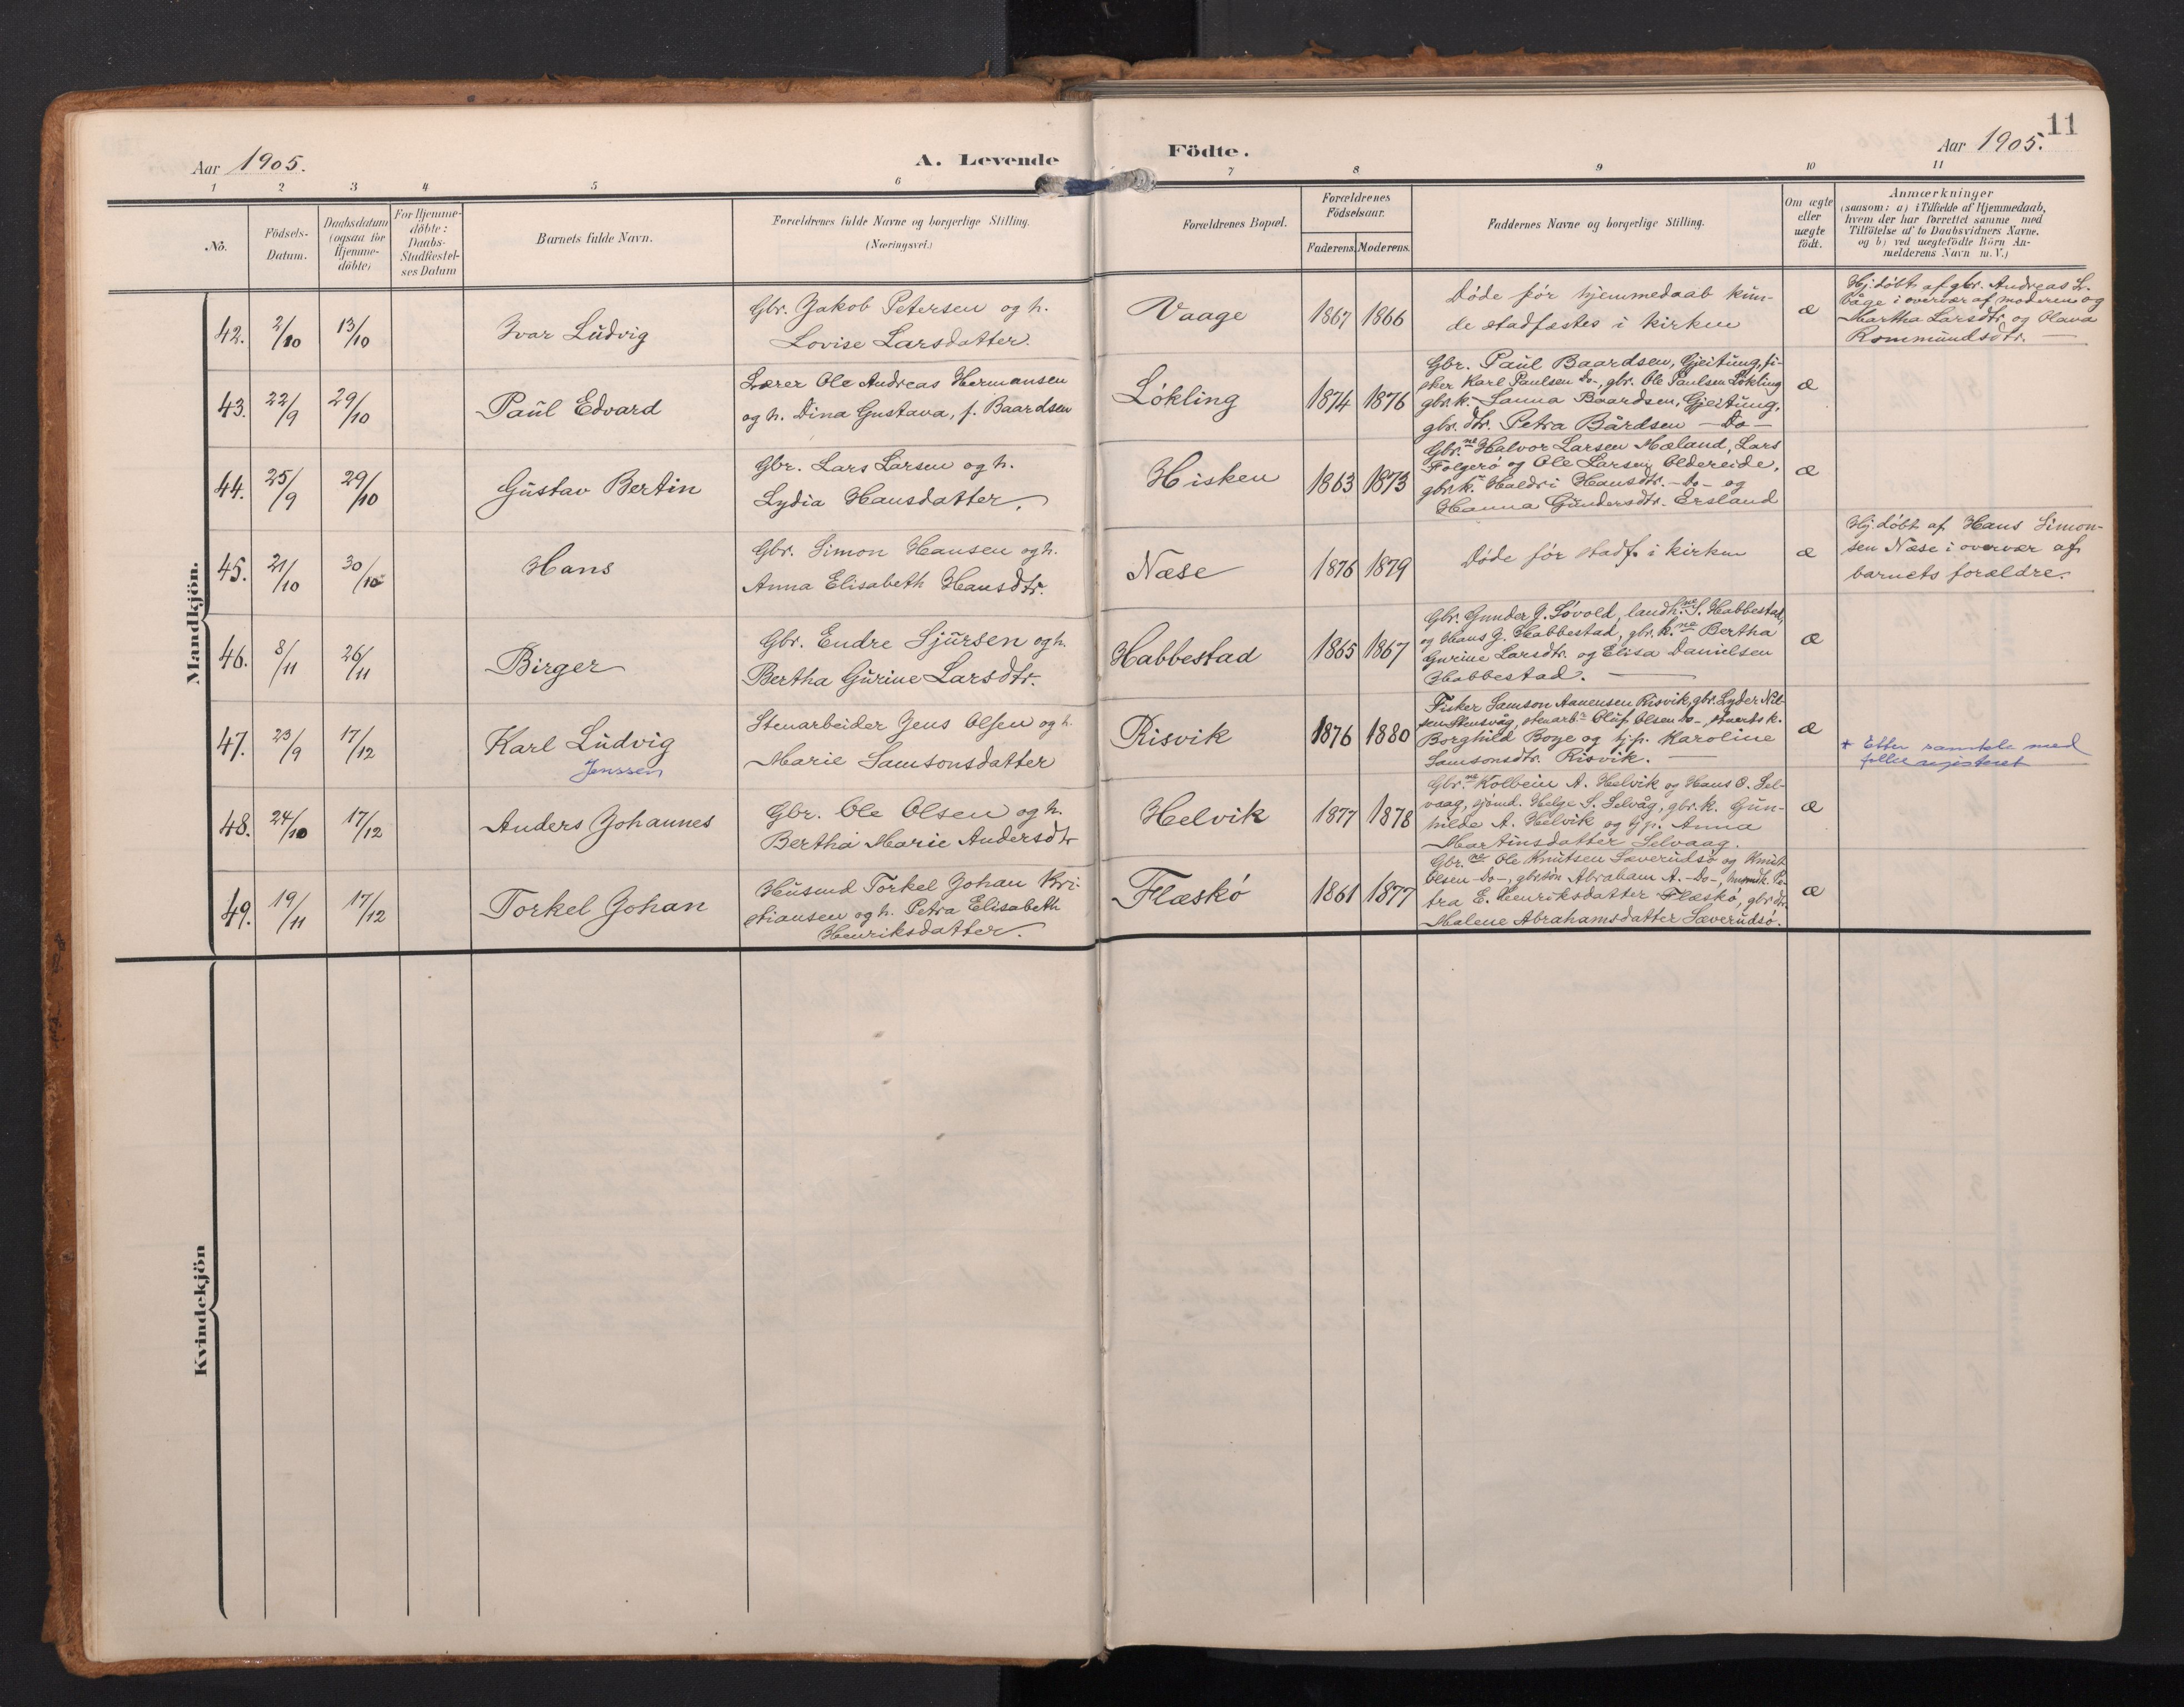 Aar 1905.
A. Levende
Födte.
11
Aar 1905.
1 2 3 4 5 6 7 8 9 10 11
No.
Födsels-
Datum.
Daabsdatum
(ogsaa for
Hjemme-
döbte)
For Hjemme-
döbte:
Daabs-
Stadfæstel-
ses Datum
Barnets fulde Navn.
Forældrenes fulde Navne og borgerlige Stilling.
(Næringsvei.)
Forældrenes Bopæl.
Forældrenes
Födselsaar.
Faderens. Moderens.
Faddernes Navne og borgerlige Stilling.
Om ægte
eller
uægte
födt.
Anmærkninger
(saasom: a) i Tilfælde af Hjemmedaab,
hvem der har forrettet samme med
Tilföielse af to Daabsvidners Navne.
og b) ved uægtefödte Börn An-
melderens Navn m. V.)
Mandkjön.
42. 2/10 13/10 Ivar Ludvig
Gbr. Jakob Petersen og h.
Lovise Larsdatter.
Vaage 1867 1866
Døde før hjemmedaab kun-
de stadfæstes i kirken
æ
Hj. døbt af gbr. Andreas L.
Våge i overvær af moderen og
Martha Larsdtr. og Olava
Rommundsdtr.
43. 22/9 29/10 Paul Edvard
Lærer Ole Andreas Hermansen
og h. Dina Gustava, f. Baardsen
Løkling 1874 1876
Gbr. Paul Baardsen, Gjeitung, fi-
sker Karl Paulsen do-, gbr. Ole Paulsen Løkling
gbr. k. Sanna Baardsen, Gjeitung,
gbr. dtr. Petra Bårdsen -Do-
æ
44. 25/9 29/10 Gustav Bertin
Gbr. Lars Larsen og h.
Lydia Hansdatter.
Hisken 1863 1873
Gbr.ne Halvor Larsen Mæland, Lars
Folgerø og Ole Larsen Oldereide,
gbr. k. Haldri Hansdtr. -do- og
Hanna Gundersdtr. Ersland
æ
45. 21/10 30/10 Hans
Gbr. Simon Hansen og h.
Anna Elisabeth Hansdtr.
Næse 1876 1879
Døde før stadf. i kirken
æ
Hj. døbt af Hans Simon-
sen Næse i overvær af
barnets forældre.
46. 8/11 26/11 Birger
Gbr. Endre Sjursen og h.
Bertha Gurine Larsdtr.
Habbestad 1865 1867
Gbr. Gunder G. Løvold, landh.ne S. Habbestad,
og Hans J. Habbestad, gbr. k.ne Bertha
Gurine Larsdtr. og Elisa Danielsen
Habbestad.
æ
47. 23/9 17/12 Karl Ludvig
Jenssen
Stenarbeider Jens Olsen og h.
Marie Samsonsdatter
Risvik 1876 1880
Fisker Samson Aanensen Risvik, gbr. Lyder Nil-
sen Stensvåg, stenarb. Oluf Olsen do-,
Borghild Boye og tj.p. Karoline
Samsonsdtr. Risvik.
æ
* Etter samtale med
48. 24/10 17/12 Anders Johannes
Gbr. Ole Olsen og h.
Bertha Marie Andersdtr
Helvik 1877 1878
Gbr.ne Kolbein A. Helvik og Hans O. Sel-
vaag, sjømd. Helge S. Selvåg, gbr. k. Gun-
hilde A. Helvik og tj.p. Anna
Martinsdatter Selvaag.
æ
49. 19/11 17/12 Torkel Johan
Husmd Torkel Johan Kri-
stiansen og h. Petra Elisabeth
Henriksdatter.
Flæskø 1861 1877
Gbr.ne Ole Knutsen Sæverudsø og Knut
Olsen -Do-, gbr.søn Abraham A. -Do-, husmdk. Pe-
tra E. Henriksdatter Flæskø, gbr. dtr.
Malene Abrahamsdatter Sæverudsø.
æ
Kvindekjön